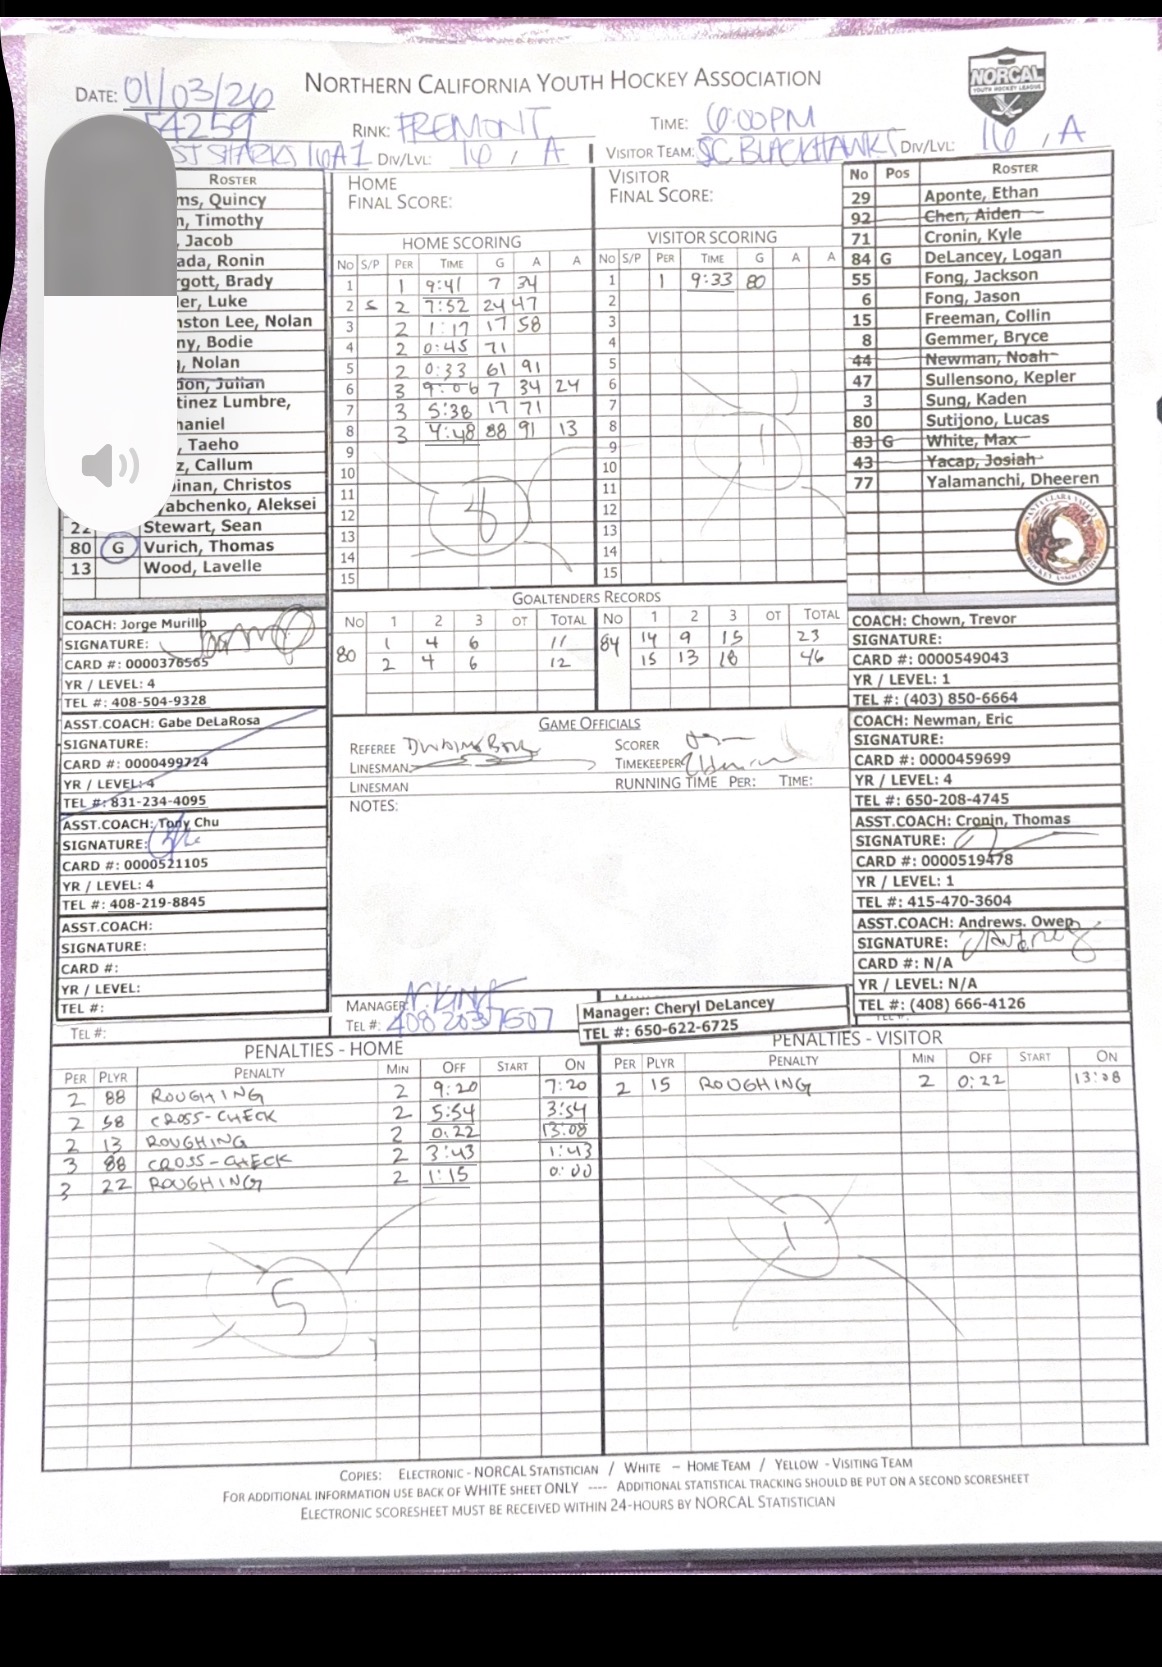 NORTHERN CALIFORNIA YOUTH HOCKEY ASSOCIATION
NORCAL
YOUTH HOCKEY LEAGUE
DATE: 01/03/26
54259
RINK: FREMONT
TIME: 6:00PM
ST SHARKS 16A1 DIV/LVL: 16 / A
VISITOR TEAM: SC BLACKHAWKS DIV/LVL: 16 / A
ROSTER
ms, Quincy
n, Timothy
, Jacob
ada, Ronin
rgott, Brady
ler, Luke
nston Lee, Nolan
ny, Bodie
, Nolan
don, Julian
tinez Lumbre,
haniel
, Taeho
z, Callum
inan, Christos
yabchenko, Aleksei
22 Stewart, Sean
80 G Vurich, Thomas
13 Wood, Lavelle
HOME
FINAL SCORE:
VISITOR
FINAL SCORE:
HOME SCORING
NO S/P PER TIME G A A
1 1 9:41 7 34
2 S 2 7:52 24 47
3 2 1:17 17 58
4 2 0:45 71
5 2 0:33 61 91
6 3 9:06 7 34 24
7 3 5:38 17 71
8 3 4:48 88 91 13
9
10
11
12
13
14
15
8
VISITOR SCORING
NO S/P PER TIME G A A
1 1 9:33 80
2
3
4
5
6
7
8
9
10
11
12
13
14
15
1
No Pos ROSTER
29 Aponte, Ethan
92 Chen, Aiden
71 Cronin, Kyle
84 G DeLancey, Logan
55 Fong, Jackson
6 Fong, Jason
15 Freeman, Collin
8 Gemmer, Bryce
44 Newman, Noah
47 Sullensono, Kepler
3 Sung, Kaden
80 Sutijono, Lucas
83 G White, Max
43 Yacap, Josiah
77 Yalamanchi, Dheeren
SANTA CLARA VALLEY
HOCKEY ASSOCIATION
GOALTENDERS RECORDS
NO 1 2 3 OT TOTAL NO 1 2 3 OT TOTAL
80 1 4 6 11 84 14 9 15 23
2 4 6 12 15 13 18 46
COACH: Jorge Murillo
SIGNATURE:
CARD #: 0000376565
YR / LEVEL: 4
TEL #: 408-504-9328
ASST.COACH: Gabe DeLaRosa
SIGNATURE:
CARD #: 0000499724
YR / LEVEL: 4
TEL #: 831-234-4095
ASST.COACH: Tony Chu
SIGNATURE:
CARD #: 0000521105
YR / LEVEL: 4
TEL #: 408-219-8845
ASST.COACH:
SIGNATURE:
CARD #:
YR / LEVEL:
TEL #:
TEL #:
GAME OFFICIALS
REFEREE
LINESMAN
LINESMAN
SCORER
TIMEKEEPER
RUNNING TIME PER: TIME:
NOTES:
MANAGER: N. KING
TEL #: 408 203 7507
Manager: Cheryl DeLancey
TEL #: 650-622-6725
COACH: Chown, Trevor
SIGNATURE:
CARD #: 0000549043
YR / LEVEL: 1
TEL #: (403) 850-6664
COACH: Newman, Eric
SIGNATURE:
CARD #: 0000459699
YR / LEVEL: 4
TEL #: 650-208-4745
ASST.COACH: Cronin, Thomas
SIGNATURE:
CARD #: 0000519478
YR / LEVEL: 1
TEL #: 415-470-3604
ASST.COACH: Andrews. Owen
SIGNATURE:
CARD #: N/A
YR / LEVEL: N/A
TEL #: (408) 666-4126
PENALTIES - HOME
PER PLYR PENALTY MIN OFF START ON
2 88 ROUGHING 2 9:20 7:20
2 58 CROSS-CHECK 2 5:54 3:54
2 13 ROUGHING 2 0:22 13:08
3 88 CROSS-CHECK 2 3:43 1:43
3 22 ROUGHING 2 1:15 0:00
5
PENALTIES - VISITOR
PER PLYR PENALTY MIN OFF START ON
2 15 ROUGHING 2 0:22 13:08
1
COPIES: ELECTRONIC - NORCAL STATISTICIAN / WHITE – HOME TEAM / YELLOW - VISITING TEAM
FOR ADDITIONAL INFORMATION USE BACK OF WHITE SHEET ONLY ---- ADDITIONAL STATISTICAL TRACKING SHOULD BE PUT ON A SECOND SCORESHEET
ELECTRONIC SCORESHEET MUST BE RECEIVED WITHIN 24-HOURS BY NORCAL STATISTICIAN